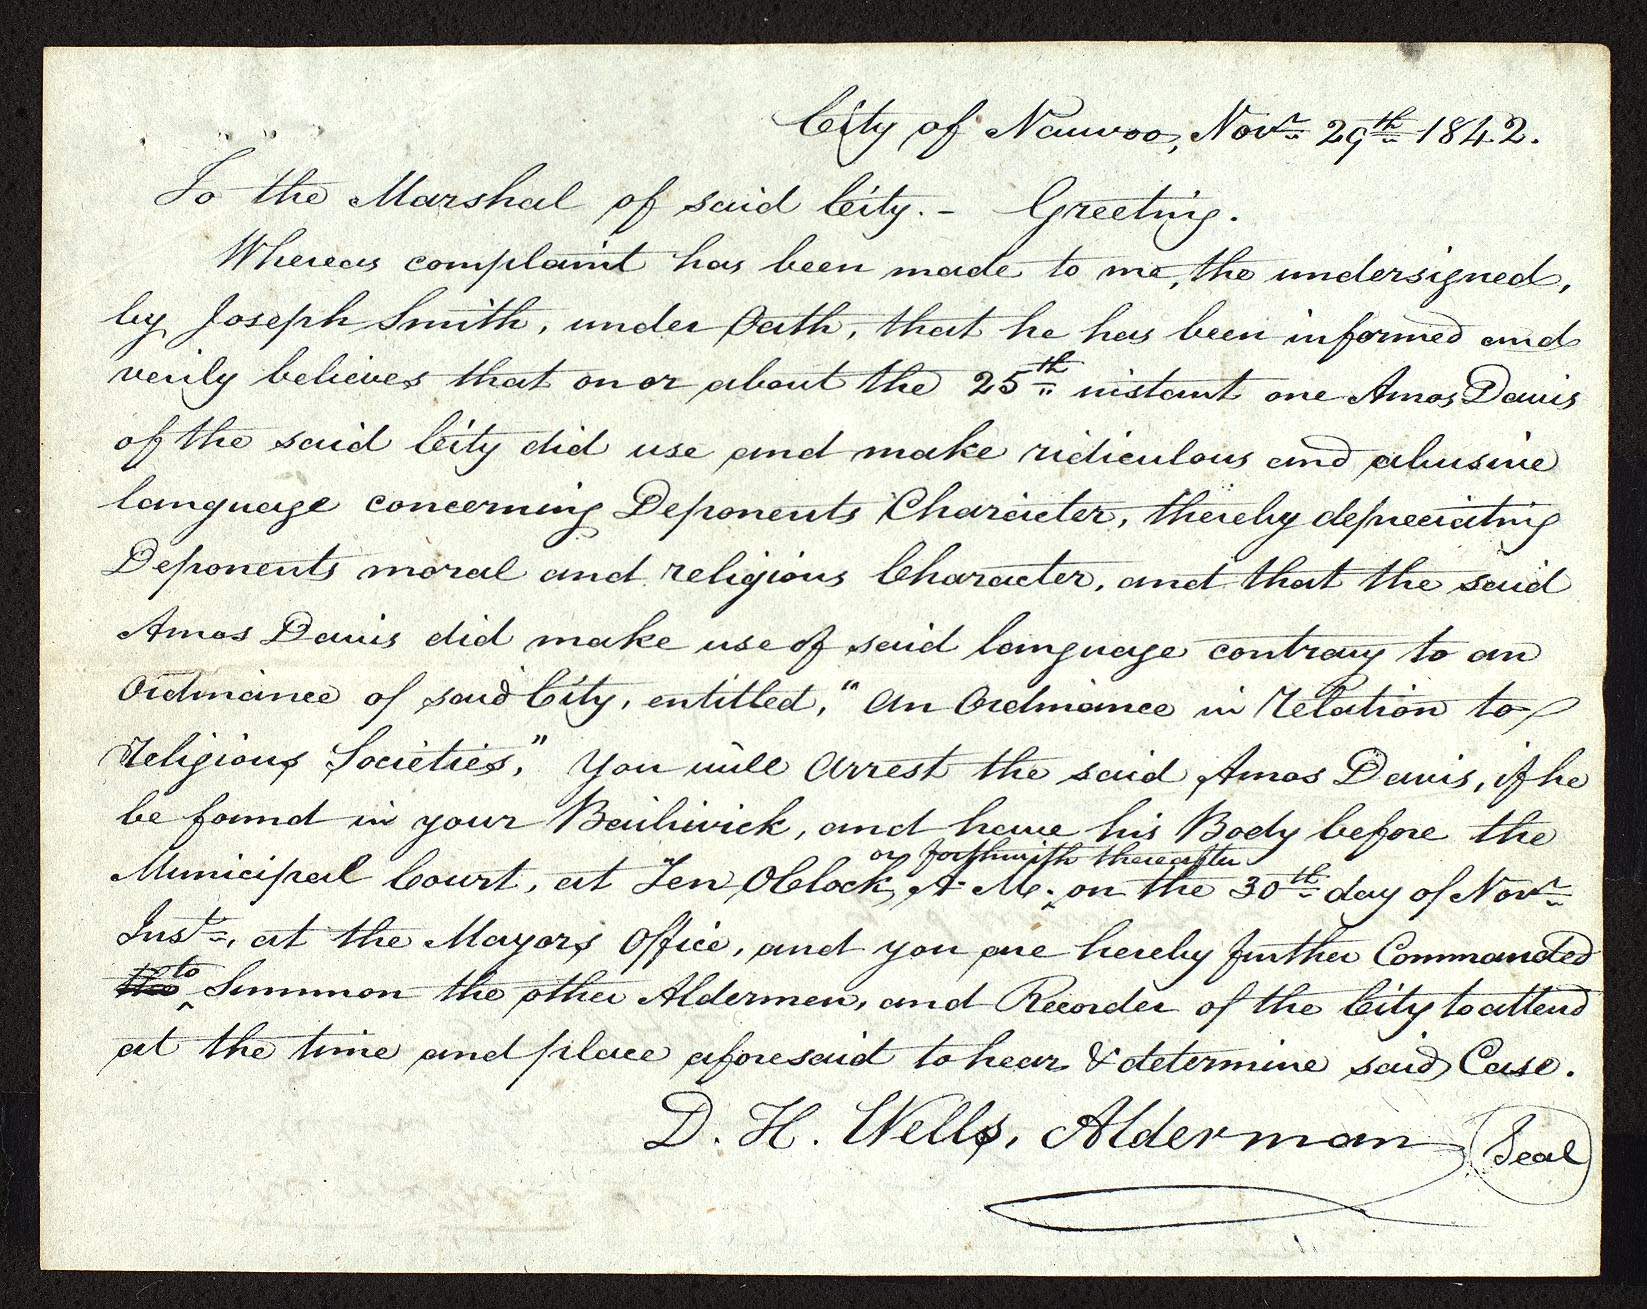 City of Nauvoo, Novr. 29th. 1842.
To the Marshal of said City. - Greeting.
Whereas complaint has been made to me, the undersigned,
by Joseph Smith, under Oath, that he has been informed and
verily believes that on or about the 25th instant one Amos Davis
of the said City did use and make ridiculous and abusive
language concerning Deponents Character, thereby depreciating
Deponents moral and religious Character, and that the said
Amos Davis did make use of said language contrary to an
Ordinance of said City, entitled, "An Ordinance in relation to
religious Societies," You will Arrest the said Amos Davis, if he
be found in your Bailiwick, and have his Body before the
or forthwith thereafter
Municipal Court, at Ten OClock, A. M. on the 30th day of Novr.
Inst., at the Mayors Office, and you are hereby further Commanded
the to Summon the other Aldermen, and Recorder of the City to attend
at the time and place aforesaid to hear & determine said Case.
D. H. Wells, Alderman Seal